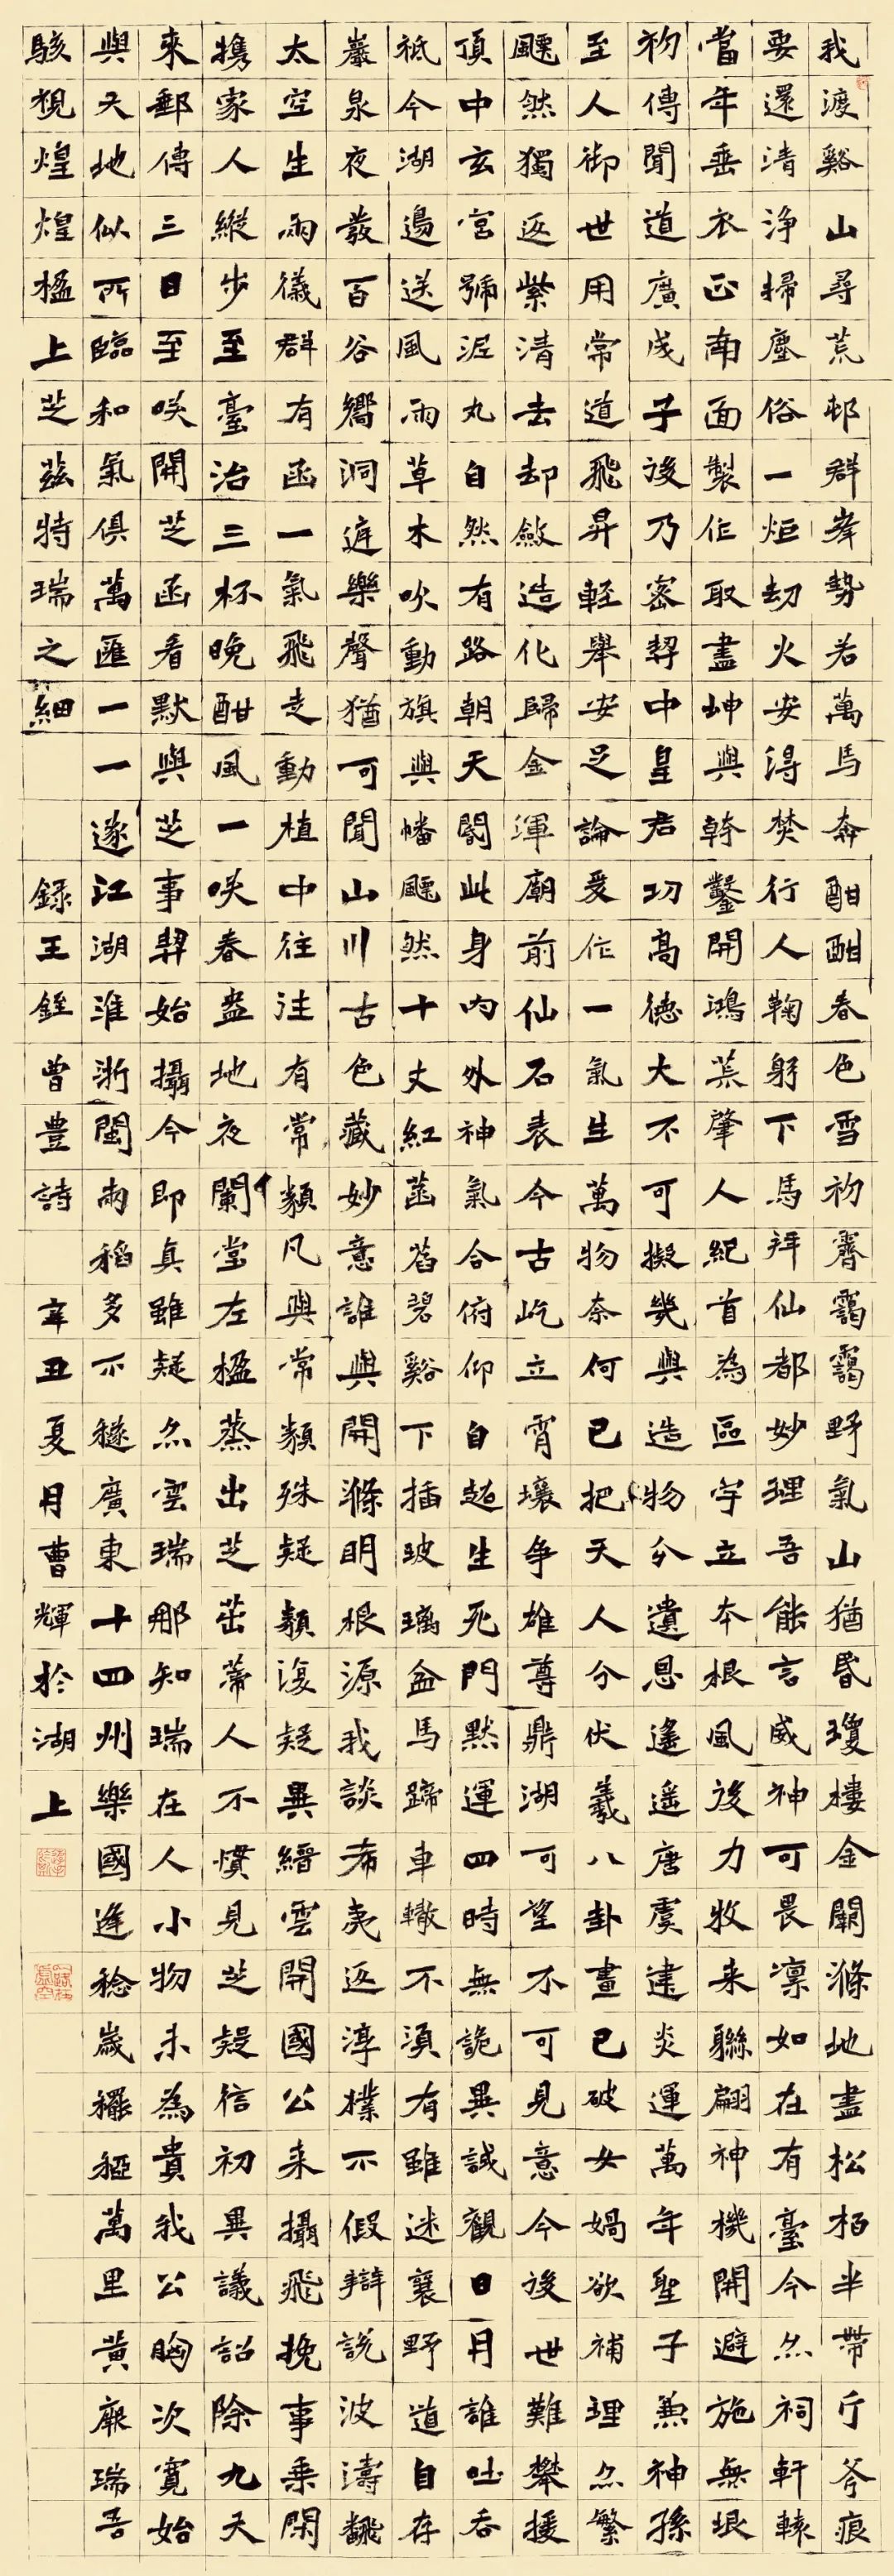 我渡谿山尋荒邨群峯勢若萬馬奔酣酣春色雪初霽靄靄野氣山猶昏瓊樓金闕滌地盡松栢半帶斤斧痕
要還清淨掃塵俗一炬劫火安得焚行人鞠躬下馬拜仙都妙理吾能言威神可畏凛如在有臺今尒祠軒轅
當年垂衣正南面製作取盡坤與乾鑿開鴻荒肇人紀首為區宇立本根風後力牧来聯翩神機開避施無垠
初傳聞道廣成子後乃密契中皇君功高德大不可擬幾與造物分遺恩遙遥唐虞建炎運萬年聖子兼神孫
至人御世用常道飛昇輕舉安足論爰作一氣生萬物奈何已把天人分伏羲八卦畫已破女媧欲補理尒繁
飃然獨返紫清去却斂造化歸金渾廟前仙石表今古屹立霄壤争雄尊鼎湖可望不可見意今後世難攀援
頂中玄宮號泥丸自然有路朝天閽此身内外神氣合俯仰自超生死門默運四時無詭異誠觀日月誰吐吞
祗今湖邊送風雨草木吹動旗與幡飃然十丈紅菡萏碧谿下插玻璃盆馬蹄車轍不須有雖迷襄野道自存
巖泉夜發百谷嚮洞庭樂聲猶可聞山川古色藏妙意誰與開滌明根源我談希夷返淳樸不假辯說波濤飜
太空生兩儀群有函一氣飛走動植中往往有常類凡與常類殊疑類復疑異縉雲開國公来攝飛挽事乘閑
携家人縱步至臺治三杯晚酣風一咲春盎地夜闌堂左楹蒸出芝茁蒂人不慣見芝疑信初異議詔除九天
來郵傳三日至咲開芝函看默與芝事契始攝今即真雖疑尒雲瑞那知瑞在人小物未為貴我公胸次寛始
與天地似所臨和氣俱萬匯一一遂江湖淮浙閩兩稻多不穟廣東十四州樂國逢稔歲䆉稏萬里黄厥瑞吾
駭視煌煌楹上芝茲特瑞之細 錄王銍曾豊詩 辛丑夏月曹輝於湖上